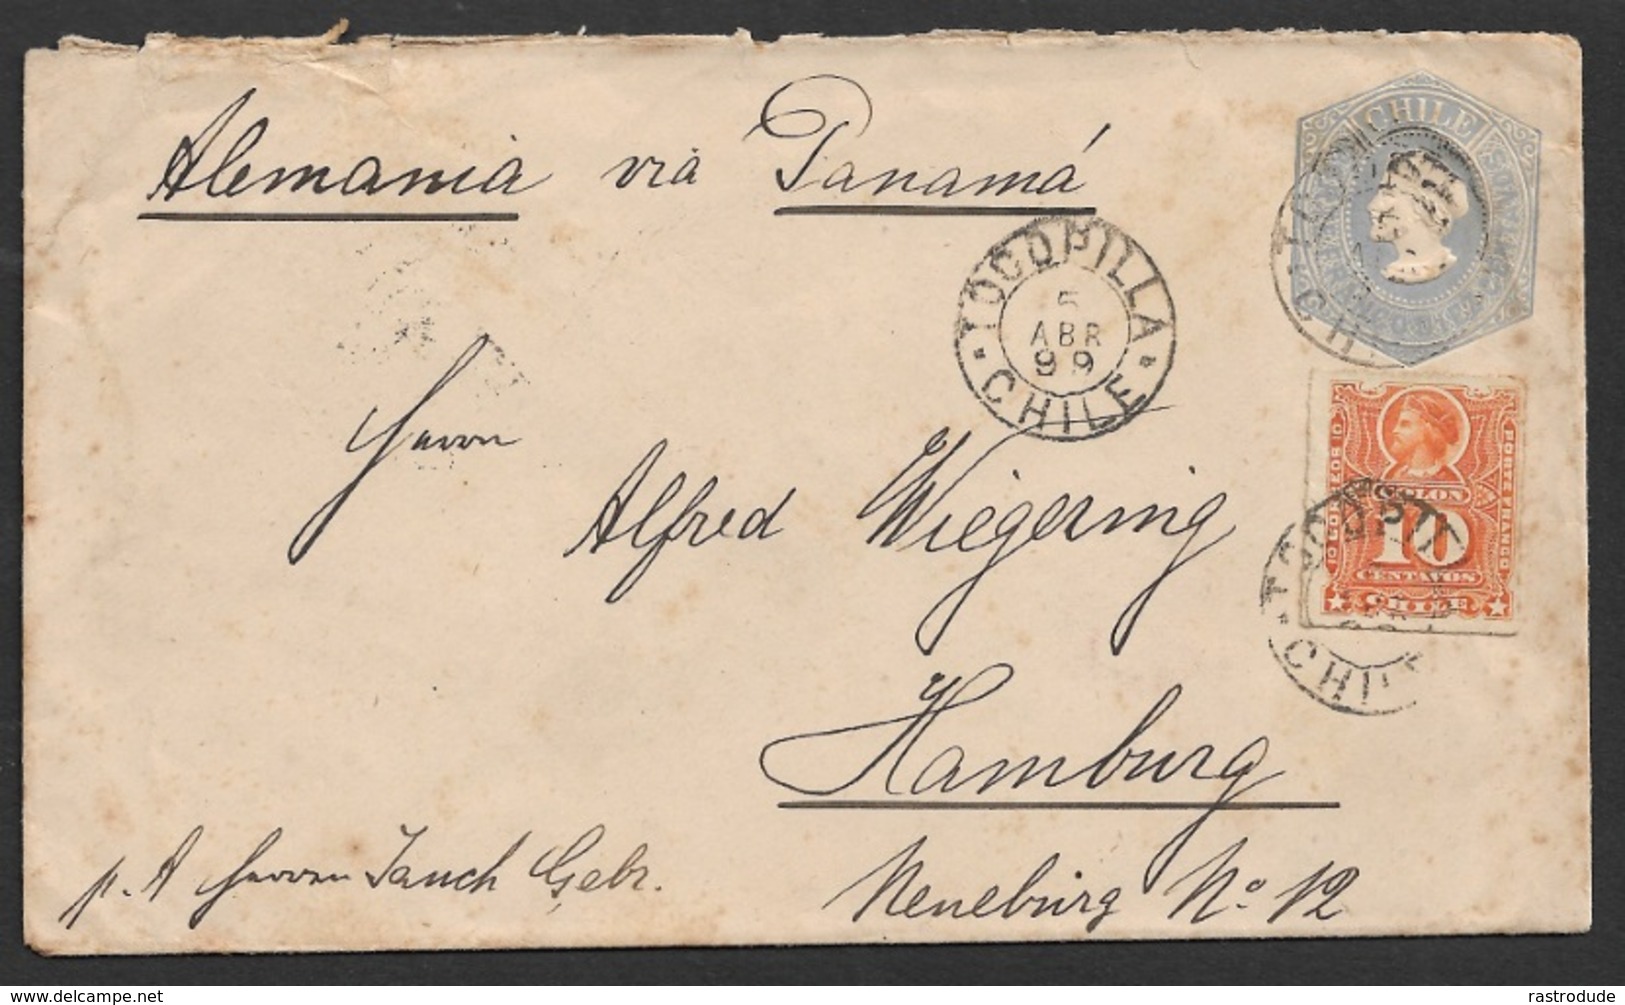 Alemania via Panamá
CHILE
TOCOPILLA
5
ABR
99
CHILE
COLON
10
CENTAVOS
CHILE
PORTE FRANCO
TOCOPILLA
CHILE
Herrn
Alfred Wiegering
Hamburg
p. A Herren Jauch Gebr.
Neueburg No 12
delcampe.net
rastrodude